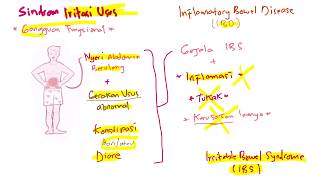 Sindrom Iritasi Usus
* Gangguan Fungsional *
Nyeri Abdomen
Berulang
+
Gerakan Usus
abnormal
Konstipasi
Diare
Inflammatory Bowel Disease
(IBD)
Gejala IBS
+
* Inflamasi *
* Tukak *
* Kerusakan lainnya
Irritable Bowel Syndrome
(IBS)